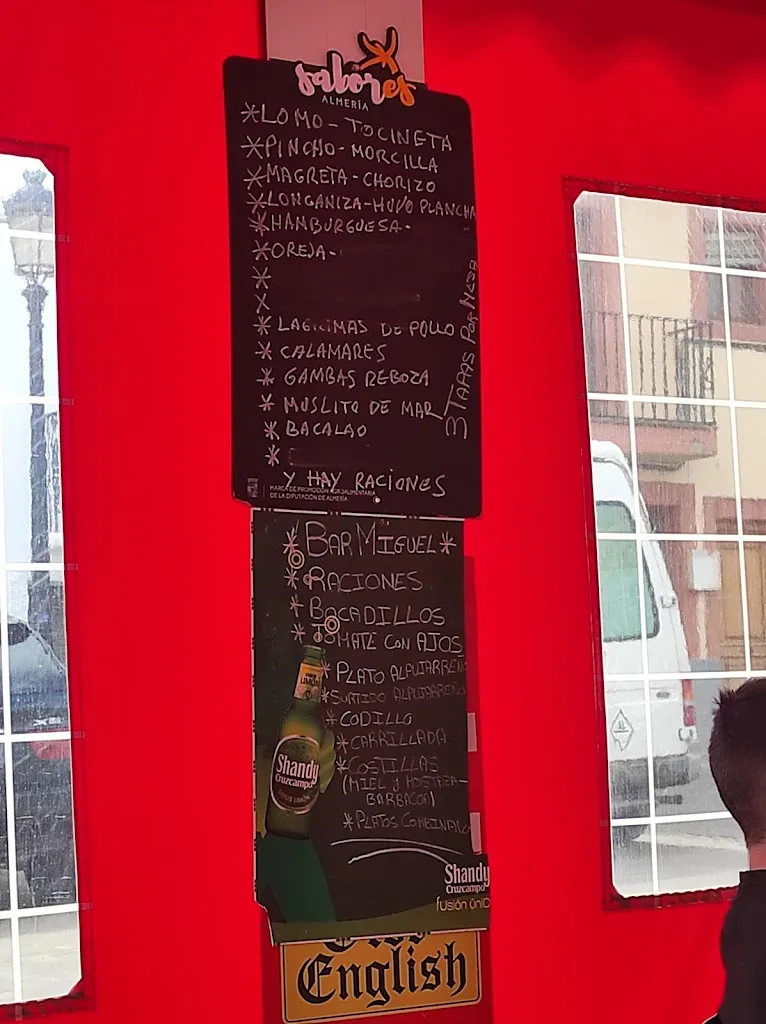 sabores
ALMERÍA
*LOMO - TOCINETA
*PINCHO - MORCILLA
*MAGRETA - CHORIZO
*LONGANIZA - HUVO PLANCHA
*HAMBURGUESA -
*OREJA -
*
X
* LAGRIMAS DE POLLO
* CALAMARES
* GAMBAS REBOZA
* MUSLITO DE MAR
* BACALAO
*
3 TAPAS POR MESA
Y HAY RACIONES
MARCA DE PROMOCIÓN AGROALIMENTARIA
DE LA DIPUTACIÓN DE ALMERÍA
* BAR MIGUEL *
* RACIONES
* BOCADILLOS
* TOMATE CON AJOS
* PLATO ALPUJARREÑO
* SURTIDO ALPUJARREÑO
* CODILLO
* CARRILLADA
* COSTILLAS
(MIEL Y MOSTAZA-
BARBACOA)
* PLATOS COMBINADO
Shandy
Cruzcampo
Shandy
Cruzcampo
fusión únic
English